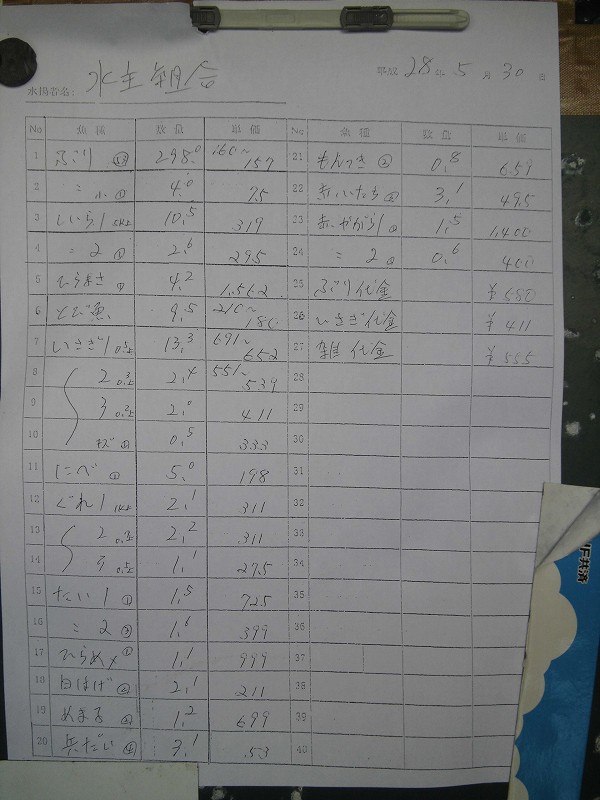 水主組合
平成 28 年 5 月 30 日
水揚者名:
No 魚種 数量 単価 No 魚種 数量 単価
1 ぶり 298.0 160~157 21 もんつき ② 0.8 659
2 〃 小 ① 4.0 75 22 赤いたち ② 3.1 495
3 しいら1 10.5 319 23 赤やがら1 ① 1.5 1,400
4 〃 2 ① 2.6 295 24 〃 2 ① 0.6 400
5 ひらまさ ① 4.2 1,562 25 ぶり代金 ¥680
6 とび魚 9.5 210~180 26 いさぎ代金 ¥411
7 いさぎ1 13.3 691~652 27 雑代金 ¥555
8 2 2.4 551~539 28
9 3 2.0 411 29
10 0.5 333 30
11 にべ ① 5.0 198 31
12 ぐれ1 2.1 311 32
13 2 2.2 311 33
14 3 1.1 275 34
15 たい1 ① 1.5 725 35
16 〃 2 ③ 1.6 399 36
17 ひらめ ① 1.1 999 37
18 白はげ 2.1 211 38
19 めまる 1.2 699 39
20 兵だい 3.1 53 40
JF共済